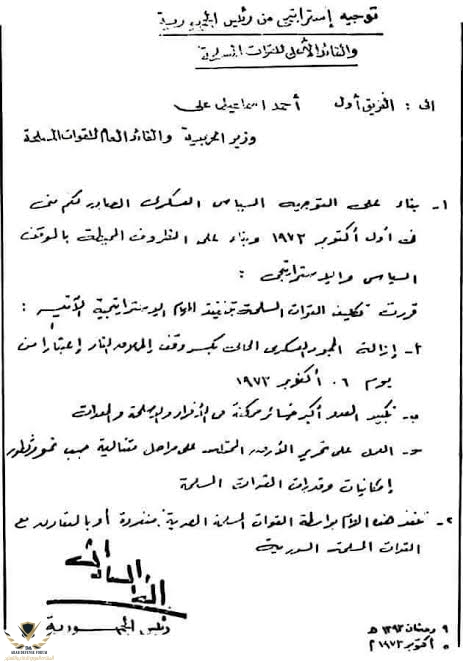 توجيه إستراتيجى من رئيس الجمهورية
والقائد الأعلى للقوات المسلحة
الى : الفريق أول أحمد اسماعيل على
وزير الحربية والقائد العام للقوات المسلحة
١- بناء على التوجيه السياسى العسكرى الصادر لكم منى
فى أول أكتوبر ١٩٧٣ وبناء على الظروف المحيطة بالموقف
السياسى والاستراتيجى :
قررت تكليف القوات المسلحة بتنفيذ المهام الاستراتيجية الآتية :
أ- إزالة الجمود العسكرى الحالى بكسر وقف إطلاق النار إعتبارا من
يوم ٠٦ أكتوبر ١٩٧٣
ب- تكبيد العدو أكبر خسائر ممكنة من الأفراد والأسلحة والمعدات
ج- العمل على تحرير الأرض المحتلة على مراحل متتالية حسب نمو وتطور
إمكانيات وقدرات القوات المسلحة
٢- تنفذ هذه المهام بواسطة القوات المسلحة المصرية منفردة أو بالتعاون مع
القوات المسلحة السورية
أنور السادات
رئيس الجمهورية
٩ رمضان ١٣٩٣ هـ
٥ أكتوبر ١٩٧٣ م